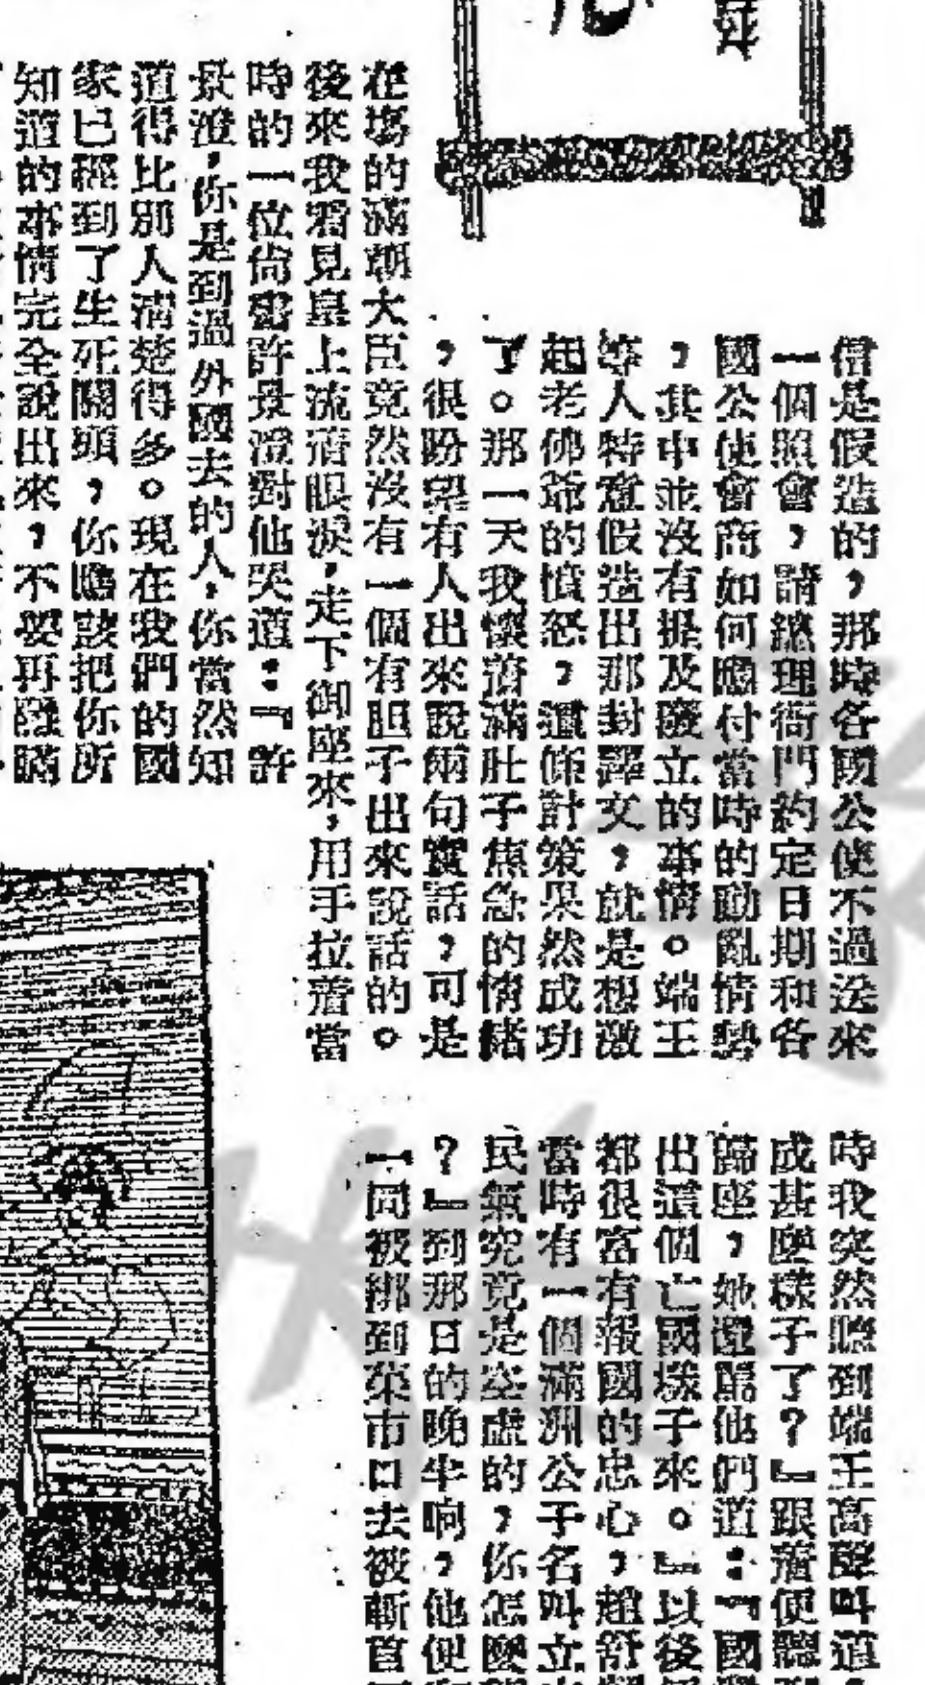 信是假造的，那時各國公使不過送來
一個照會，請總理衙門約定日期和各
國公使會商如何應付當時的動亂情勢
，其中並沒有提及廢立的事情。端王
等人特意假造出那封譯文，就是想激
起老佛爺的憤怒，這條計策果然成功
了。那一天我懷着滿肚子焦急的情緒
，很盼望有人出來說兩句實話，可是
在場的滿朝大臣竟然沒有一個有胆子出來說話的。
後來我看見皇上流着眼淚，走下御座來，用手拉着當
時的一位尙書許景澄對他哭道：『許
景澄，你是到過外國去的人，你當然知
道得比別人清楚得多。現在我們的國
家已經到了生死關頭，你應該把你所
知道的事情完全說出來，不要再隱瞞
時我突然聽到端王高聲叫道
成甚麼樣子了？』跟着便聽
歸座，她還罵他們道：『國
出這個亡國樣子來。』以後
都很富有報國的忠心，趙舒
當時有一個滿洲公子名叫立
民氣究竟是空虛的，你怎麼
？』到那日的晚半晌，他便
一同被綁到菜市口去被斬首